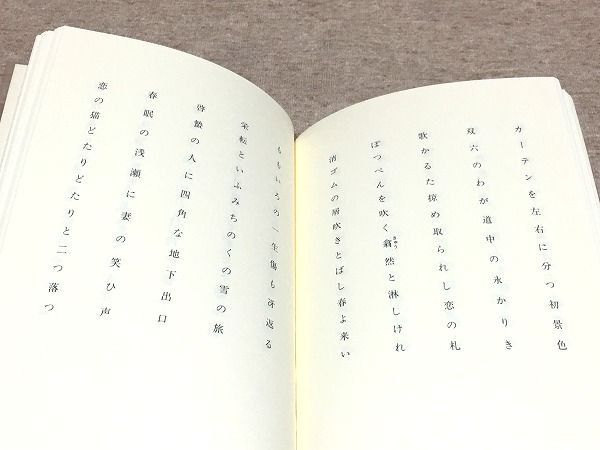 カーテンを左右に分つ初景色
双六のわが道中の永かりき
歌かるた掠め取られし恋の札
ぽつぺんを吹く翕然と淋しけれ
きゅう
消ゴムの屑吹きとばし春よ来い
ももいろの一生傷も冴返る
栄転といふみちのくの雪の旅
啓蟄の人に四角な地下出口
春眠の浅瀬に妻の笑ひ声
恋の猫どたりどたりと二つ落つ